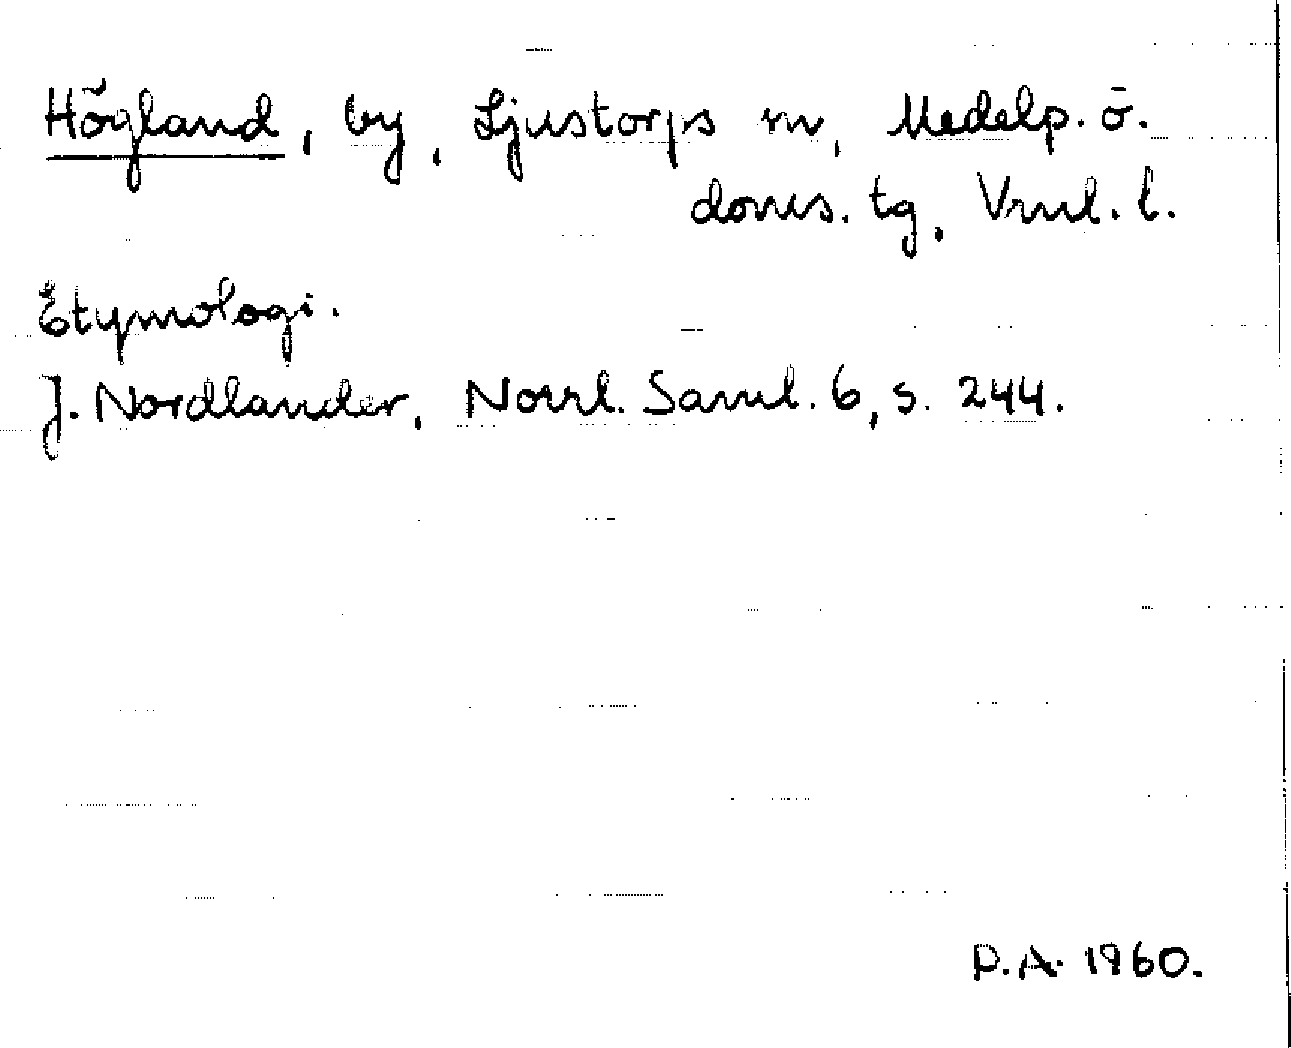 Högland, by, Ljustorps sn, Medelp. ö.
doms. tg, Vrnl. l.
Etymologi.
J. Nordlander, Norrl. Saml. 6, s. 244.
P.A. 1960.